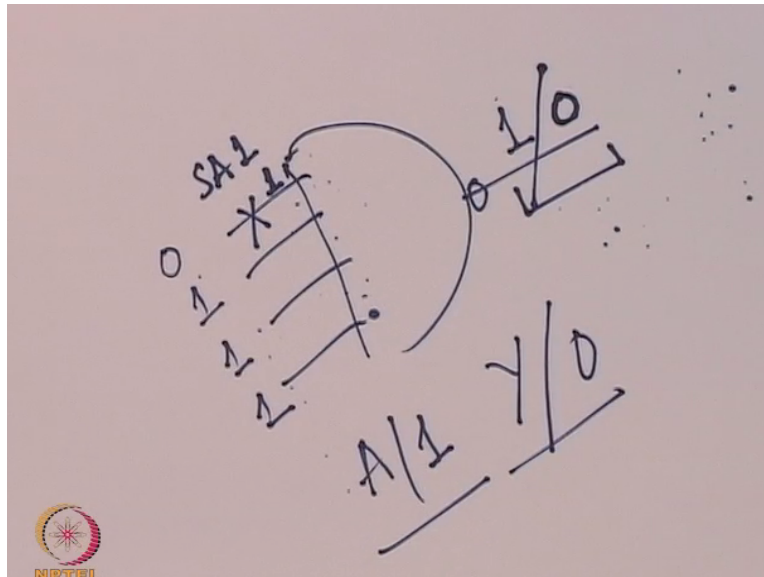 SA1
X 1
1/0
0
1
1
1
A/1 Y/0
NPTEL